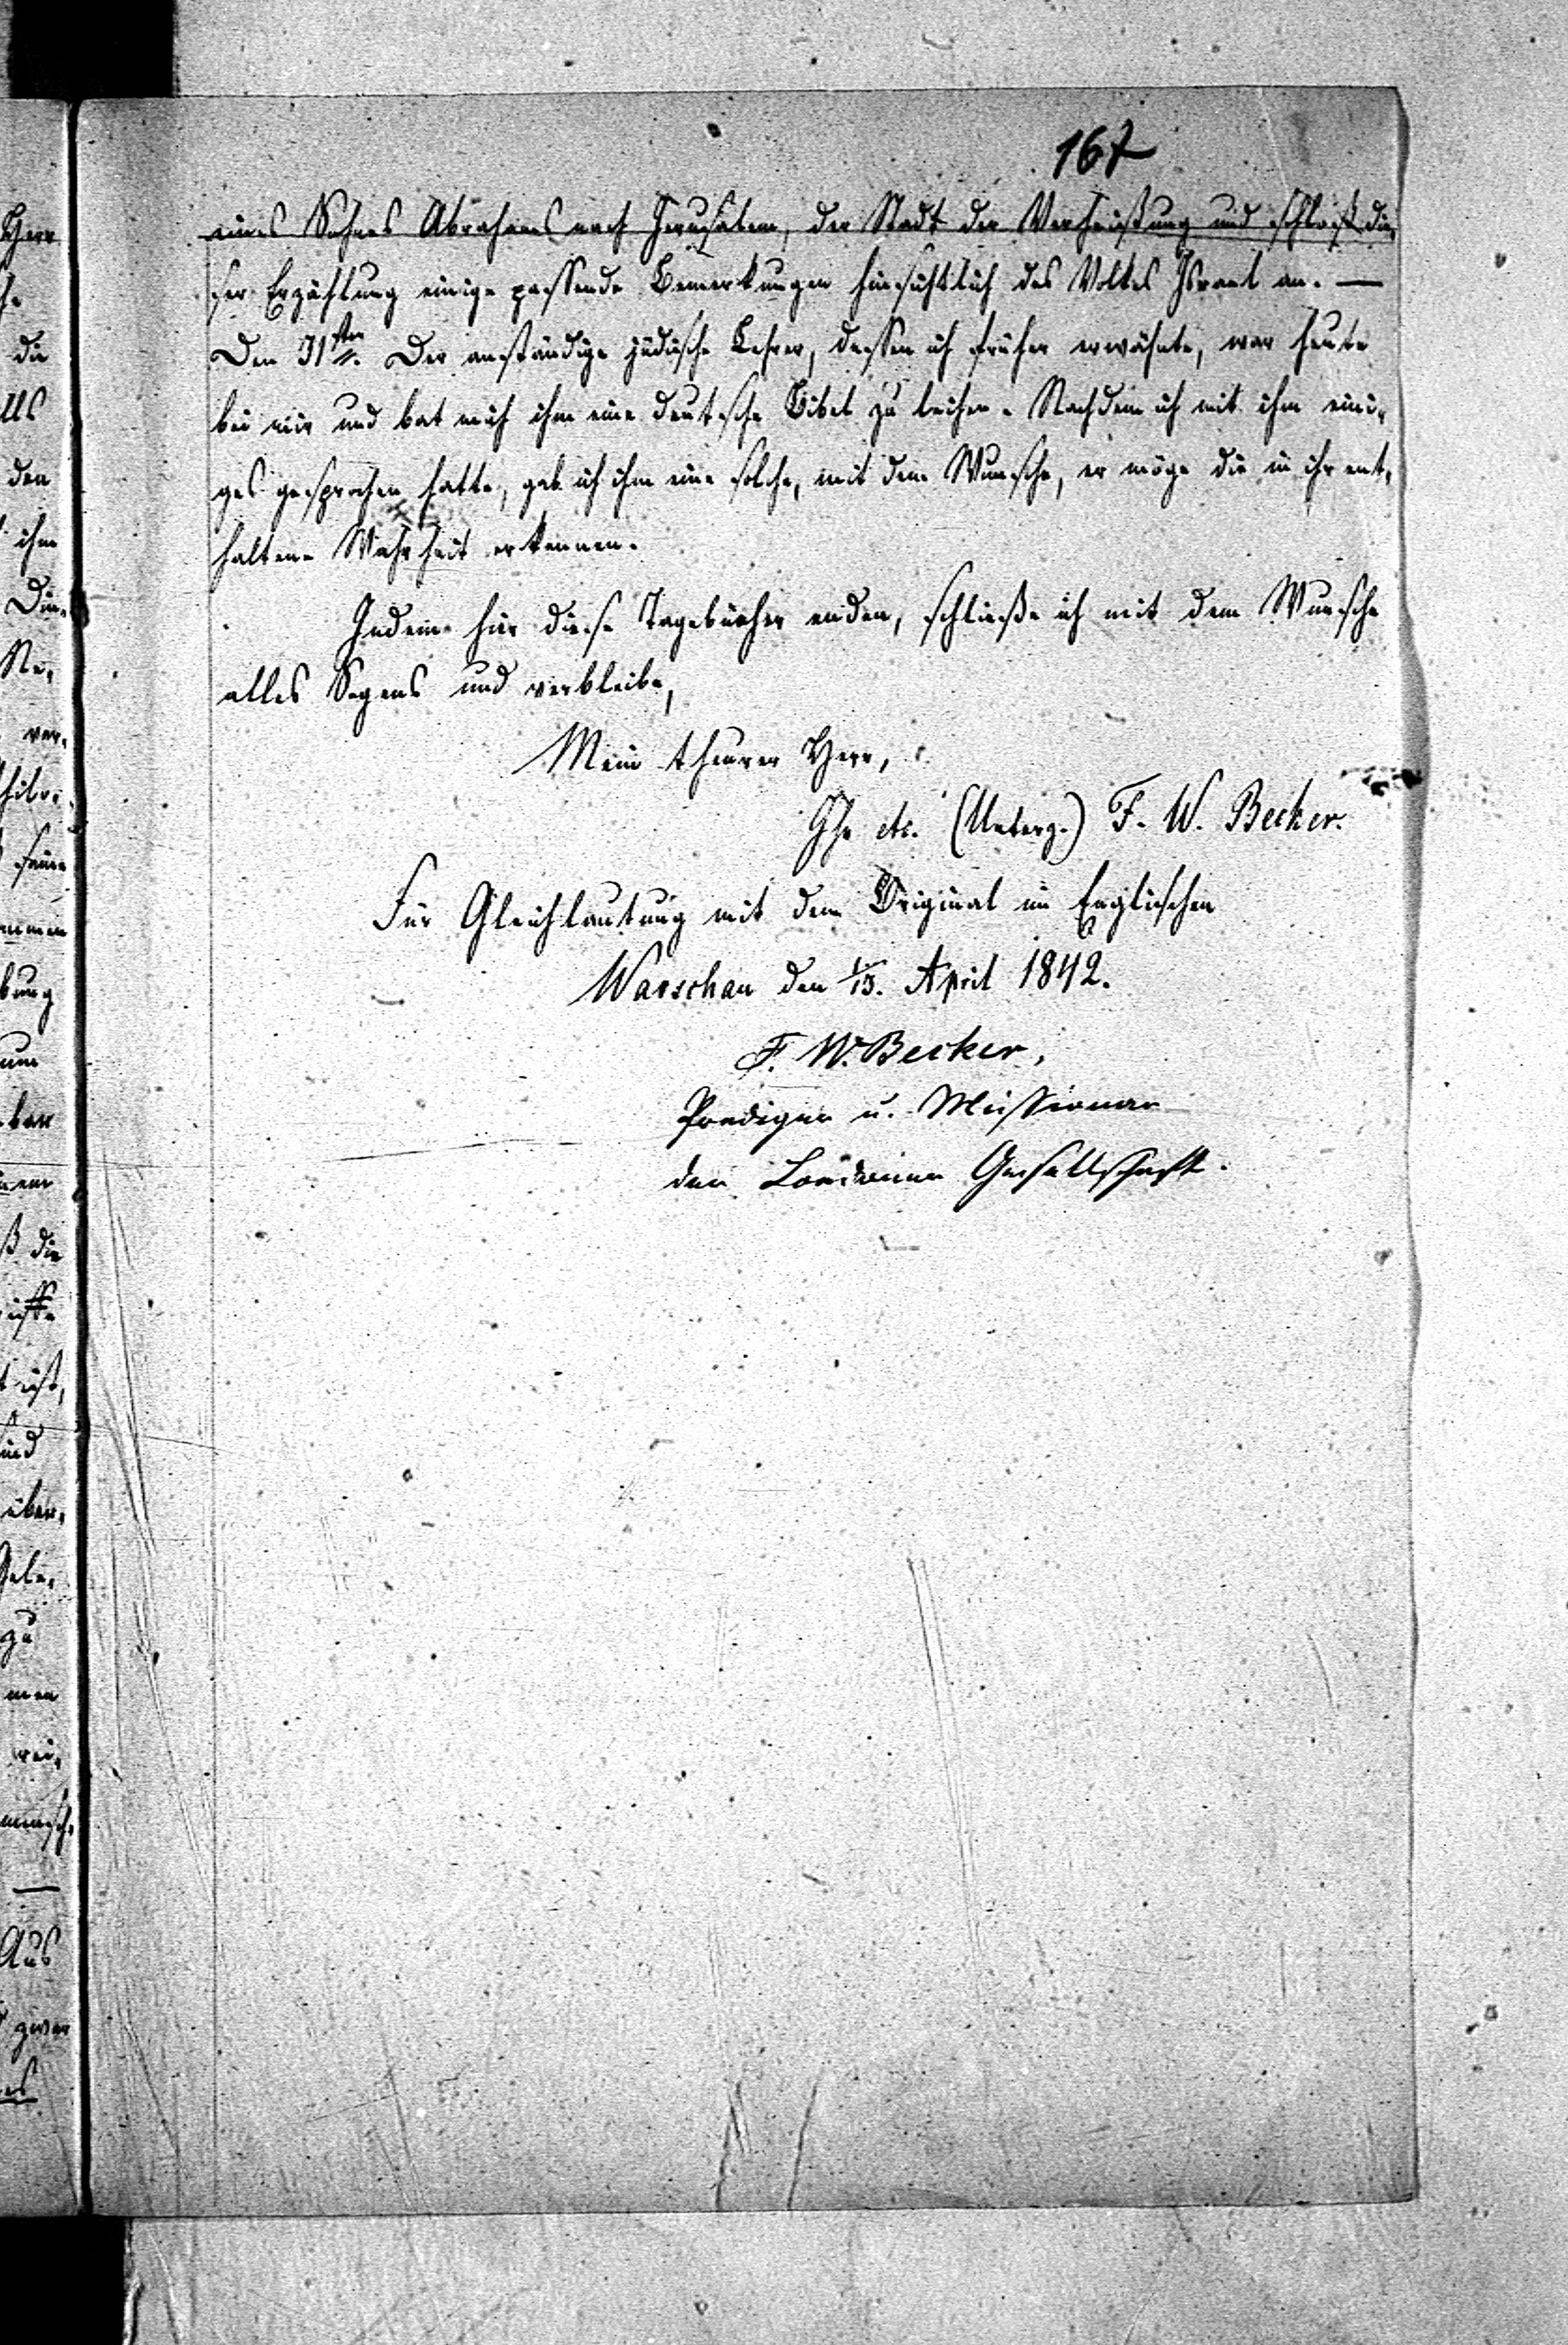 167
eines Sohnes Abrahams nach Jerusalem, der Stadt der Verheißung und schloß die-
ser Erzählung einige passende Bemerkungen hinsichtlich des Volkes Israel an. —
Den 31sten. Der anständige jüdische Lehrer, dessen ich früher erwähnte, war heute
bei mir und bat mich ihm eine deutsche Bibel zu leihen. Nachdem ich mit ihm eini-
ges gesprochen hatte, gab ich ihm eine solche, mit dem Wunsche, er möge die in ihr ent-
haltene Wahrheit erkennen.
Indem hier diese Tagebücher enden, schließe ich mit dem Wunsche
alles Segens und verbleibe,
Mein theurer Herr,
Ihr etc. (Unterz.) F. W. Becker.
Für Gleichlautung mit dem Original im Englischen
Warschau den 1/13. April 1842.
F. W. Becker,
Prediger u. Missionar
der Londoner Gesellschaft.